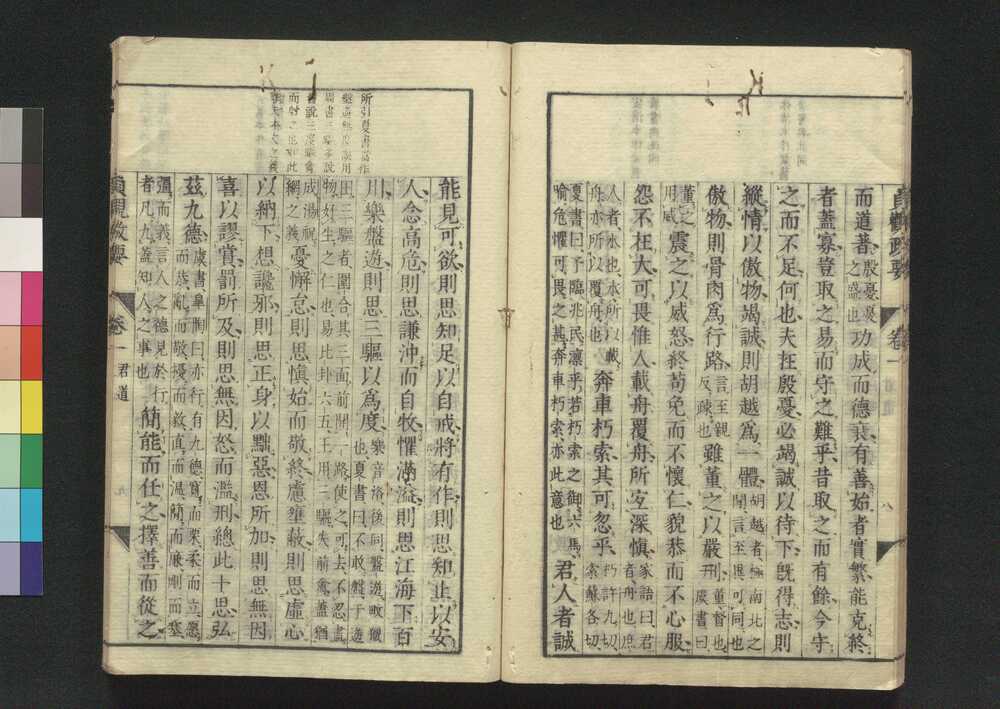 貞觀政要 卷一 八
而道著殷憂憂之盛也功成而德衰有善始者實繁能克終
者蓋寡豈取之易而守之難乎昔取之而有餘今守
之而不足何也夫在殷憂必竭誠以待下既得志則
縱情以傲物竭誠則胡越爲一體胡越者極南北之間言至異可同也
傲物則骨肉爲行路言至親反疎也雖董之以嚴刑董督也虞書曰
董之用威震之以威怒終苟免而不懷仁貌恭而不心服
怨不在大可畏惟人載舟覆舟所宜深愼家語曰君者舟也庶
人者水也水所以載舟亦所以覆舟也奔車朽索其可忽乎朽許九切索蘇各切
夏書曰予臨兆民凛乎若朽索之御六馬喻危懼可畏之甚奔車朽索亦此意也君人者誠
能見可欲則思知足以自戒將有作則思知止以安
人念高危則思謙沖而自牧懼滿溢則思江海下百
川樂盤遊則思三驅以爲度樂音洛後同盤遊畋獵也夏書曰不敢盤于遊
田三驅者圍合其三面前開一路使之可去不忍盡物好生之仁也易比卦六五王用三驅失前禽蓋猶
成湯祝網之義憂懈怠則思愼始而敬終慮壅蔽則思虛心
以納下想讒邪則思正身以黜惡恩所加則思無因
喜以謬賞罰所及則思無因怒而濫刑總此十思弘
茲九德虞書皐陶曰亦行有九德寬而栗柔而立愿而恭亂而敬擾而毅直而温簡而廉剛而塞
彊而義言人之德見於行者凡九蓋知人之事也簡能而任之擇善而從之
貞觀政要 卷一 君道 九
所引夏書當作